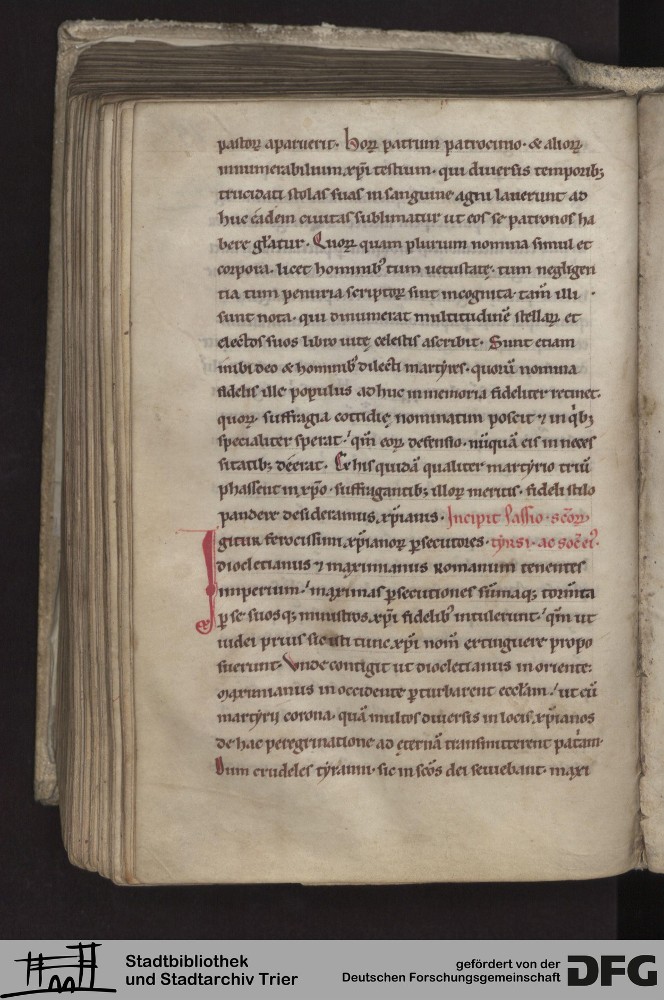 pastoꝝ aparuerit. Hoꝝ patrum patrocinio. & alioꝝ
innumerabilium xp̄i testium. qui diuersis temporibꝫ
trucidati stolas suas in sanguine agni lauerunt ad
huc eadem ciuitas sublimatur ut eos se patronos ha
bere
gr̄atur. Quoꝝ quam plurum nomina simul et
corpora. licet hominibꝰ tum uetustatę. tum negligen
tia tum penuria scriptoꝝ sint incognita. tam̄ illi
sunt nota. qui dinumerat multitudinē stellaꝝ et
electos suos libro uitę celestis ascribit. Sunt etiam
inibi deo & hominibꝰ dilecti martyres. quorū nomina
fidelis ille populus adhuc in memoria fideliter retinet.
quoꝝ suffragia cottidię nominatim poscit ⁊ in qͥbꝫ
specialiter sperat. qm̄ eoꝝ defensio. nūquā eis in neces
sitatibꝫ deerat. Ex his quidā qualiter martyrio triū
phassent in xp̄o. suffragantibꝫ illoꝝ meritis. fideli stilo
pandere desideramus xp̄ianis. Incipit Passio sc̄oꝝ
Igitur ferocissimi xp̄ianoꝝ ꝑsecutores. tyrsi. ac soc̄ eiꝰ.
dioclecianus ⁊ maximianus romanum tenentes
imperium. maximas ꝑsecutiones sūmaqꝫ torm̄ta
ꝑ se suosqꝫ ministros xp̄i fidelibꝰ intulerunt. qm̄ ut
iudei prius sic isti tunc xp̄i nom̄ extinguere propo
suerunt. Vnde contigit ut dioclecianus in oriente:
Maximianus in occidente ꝑturbarent eccl̄am. ut cū
martyrij corona. quā multos diuersis in locis xp̄ianos
de hac peregrinatione ad ęternā transmitterent pat̄am.
Dum crudeles tyranni. sic in sc̄os dei seuiebant. maxi
Stadtbibliothek
und Stadtarchiv Trier
gefördert von der
Deutschen Forschungsgemeinschaft
DFG